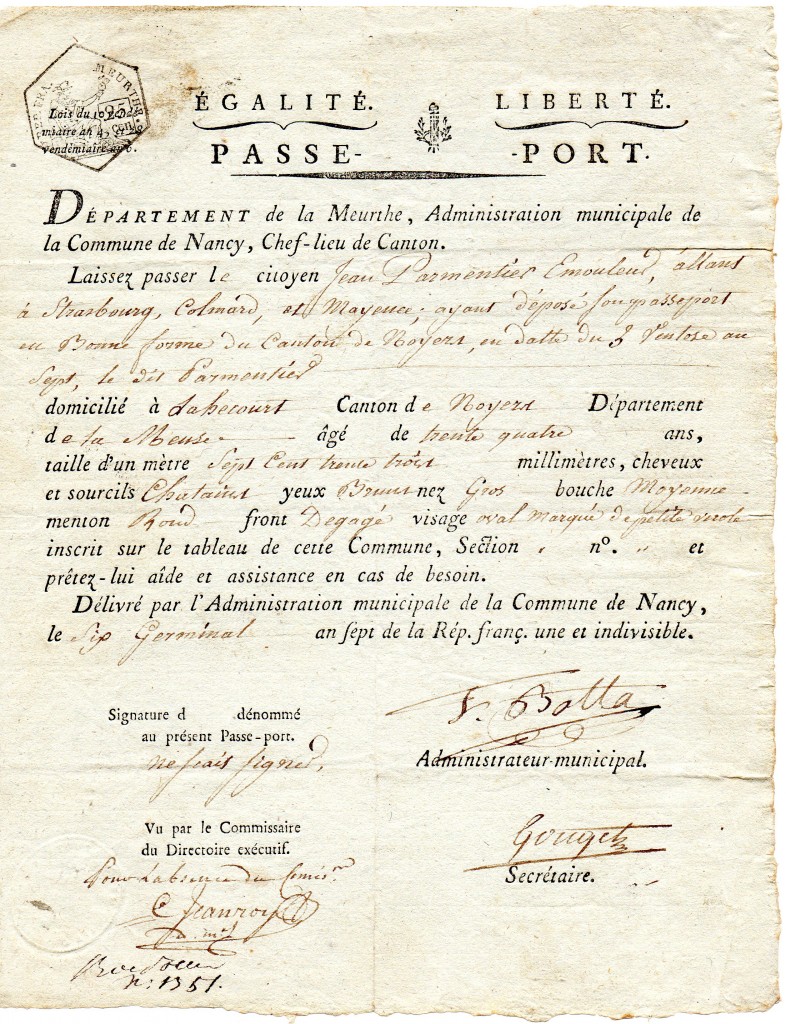 MEURTHE
Lois du 10 Bru-
miaire an
vendémiaire an 6.
25
cen.
ÉGALITÉ. LIBERTÉ.
PASSE- -PORT.
DÉPARTEMENT de la Meurthe, Administration municipale de
la Commune de Nancy, Chef-lieu de Canton.
Laissez passer le citoyen Jean Parmentier Emouleur, allant
à Strasbourg, Colmard, et Mayence; ayant déposé son passeport
en Bonne forme du Canton de Noyers, en datte du 3 Ventose an
Sept, le dit Parmentier
domicilié à Lahecourt Canton de Noyers Département
de la Meuse âgé de trente quatre ans,
taille d'un mètre Sept Cent trente trois millimètres, cheveux
et sourcils Chatains yeux Bruns nez Gros bouche Moyenne
menton Rond front Degagé visage oval marqué de petite verole
inscrit sur le tableau de cette Commune, Section „ nº. „ et
prêtez-lui aîde et assistance en cas de besoin.
Délivré par l'Administration municipale de la Commune de Nancy,
le Six Germinal an sept de la Rép. franç. une et indivisible.
Signature d dénommé
au présent Passe-port.
ne scais signer,
F. Botta
Administrateur-municipal.
Vu par le Commissaire
du Directoire exécutif.
Pour l'absence du Comisre
Gouget
Secrétaire.
n: 1351.